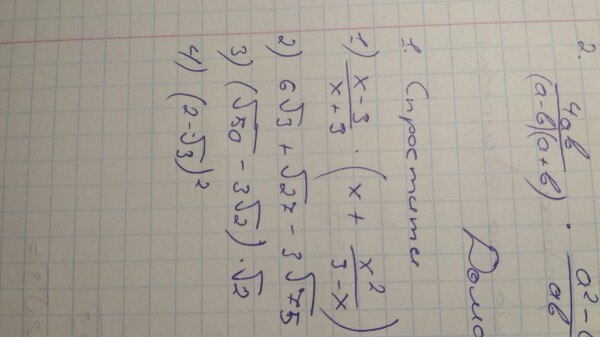 2. 4ab/((a-b)(a+b)) · a²-/ab
Дома
1. Спростити
1) (x-3)/(x+3) · (x + x²/(3-x))
2) 6√3 + √27 - 3√75
3) (√50 - 3√2) · √2
4) (2-√3)²